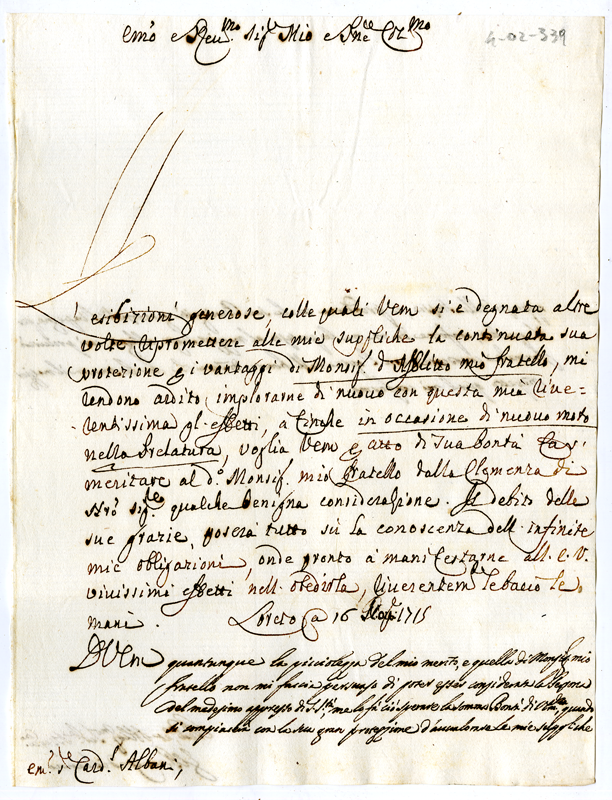 Emo e Reu.mo Sig.r Mio e Pne Col.mo
4-02-339
L'esibizioni generose, colle quali Vem si è degnata altre
volte ripromettere alle mie suppliche la continuata sua
protezione p i vantaggi di Monsig.r d' mio fratello, mi
rendono ardito implorarne di nuovo con questa mia rive=
rentissima gl'effetti, a finche in occasione di nuouo moto
nella Prelatura, voglia Vem p atto di sua bontà far
meritare al d.o Monsig.r mio fratello dalla Clemenza di
Nro Sig.re qualche benigna considerazione. Il debito delle
sue grazie poserà tutto sù la conoscenza dell'infinite
mie obligazioni, onde pronto à manifestarne all. E. V.
vivissimi effetti nell'obedirla, riverentem.te le bacio le
mani. Loreto a 16 1715
D Vem quantunque la picciolezza del mio merito, e quella di Monsig.r mio
fratello non mi faccia persuaso di poter esser considerata la Persona
del medesimo appresso di me la fà sperare la somma Bontà di quando
si compiacerà con la sua gran protezzione d'auualorare le mie suppliche
em.o S.re Card.l Albani,